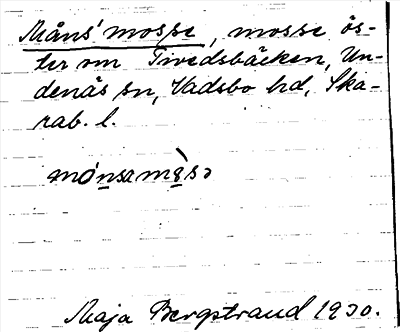 Måns' mosse, mosse ös-
ter om Tivedsbäcken, Un-
denäs sn, Vadsbo hd, Ska-
rab. l.
Maja Bergstrand 1930.